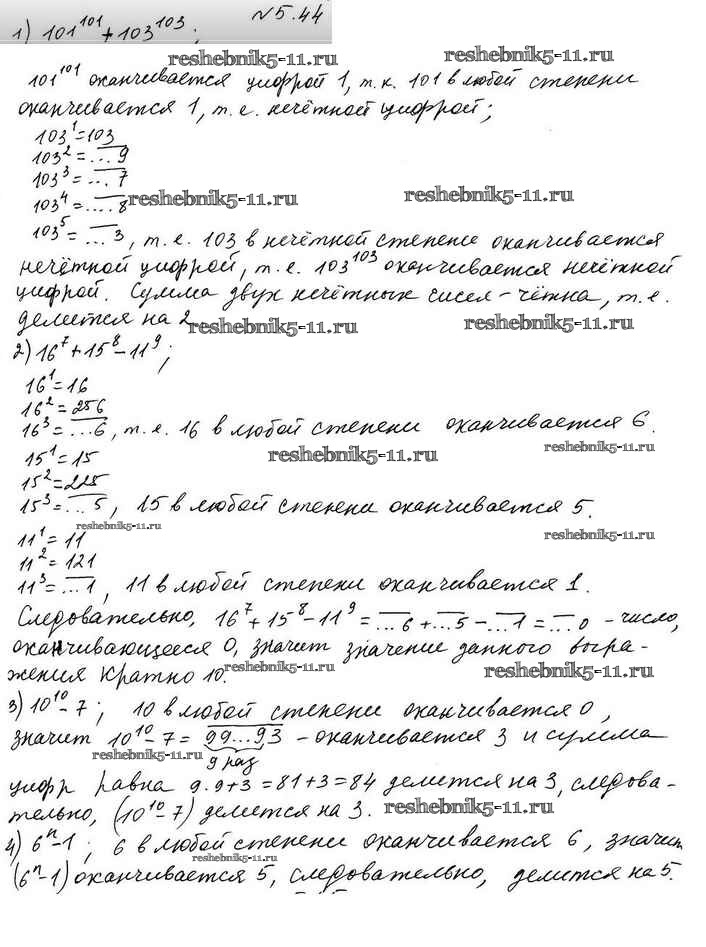 №5.44
1) 101^101 + 103^103;
reshebnik5-11.ru
101^101 оканчивается цифрой 1, т.к. 101 в любой степени
оканчивается 1, т.е. нечётной цифрой;
103^1 = 103
103^2 = ...9
103^3 = ...7
reshebnik5-11.ru reshebnik5-11.ru
103^4 = ....8
103^5 = ...3, т.е. 103 в нечётной степени оканчивается
нечётной цифрой, т.е. 103^103 оканчивается нечётной
цифрой. Сумма двух нечётных чисел - чётна, т.е.
делится на 2
reshebnik5-11.ru reshebnik5-11.ru
2) 16^7 + 15^8 - 11^9;
16^1 = 16
16^2 = 256
16^3 = ...6, т.е. 16 в любой степени оканчивается 6.
reshebnik5-11.ru reshebnik5-11.ru
15^1 = 15
15^2 = 225
15^3 = ...5, 15 в любой степени оканчивается 5.
reshebnik5-11.ru reshebnik5-11.ru
11^1 = 11
11^2 = 121
11^3 = ...1, 11 в любой степени оканчивается 1.
Следовательно, 16^7 + 15^8 - 11^9 = ...6 + ...5 - ...1 = ...0 - число,
оканчивающееся 0, значит значение данного выра-
жения кратно 10.
reshebnik5-11.ru reshebnik5-11.ru
3) 10^10 - 7; 10 в любой степени оканчивается 0,
значит 10^10 - 7 = 99...93 - оканчивается 3 и сумма
reshebnik5-11.ru
9 раз
цифр равна 9·9+3=81+3=84 делится на 3, следова-
тельно, (10^10 - 7) делится на 3.
reshebnik5-11.ru
4) 6^n - 1; 6 в любой степени оканчивается 6, значит
reshebnik5-11.ru
(6^n - 1) оканчивается 5, следовательно, делится на 5.